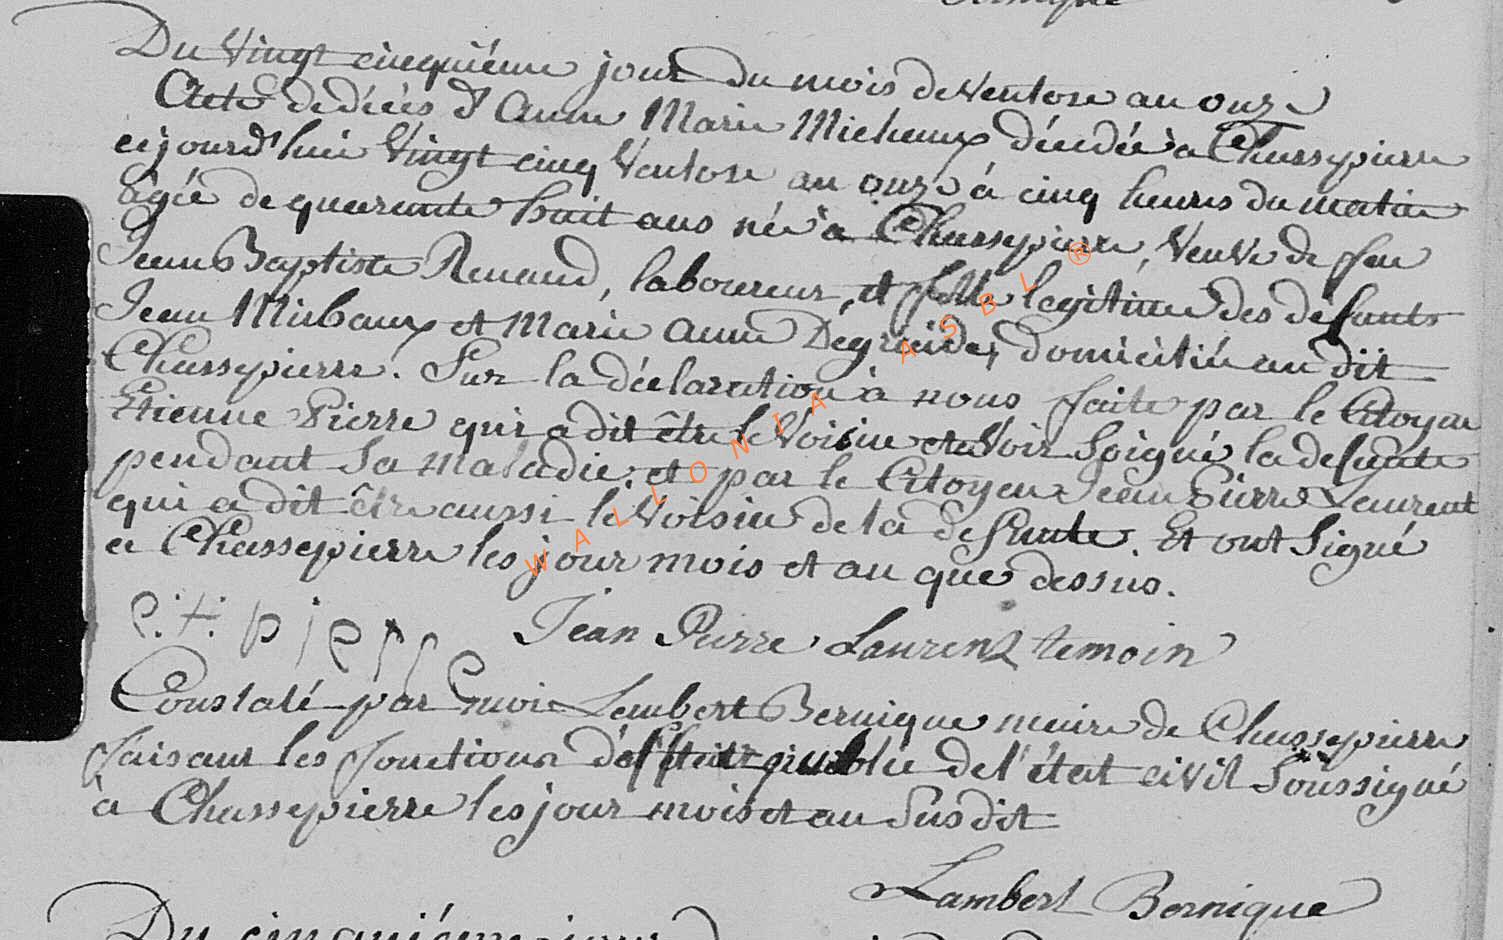 Du Vingt cinquiéme jour du mois de Ventose an onze
Acte de décés d'Anne Marie Michaux décédée à Chassepierre
cejourd'hui Vingt cinq Ventose an onze à cinq heures du matin
agée de quarante huit ans née à Chassepierre, Veuve de feu
Jean Baptiste Renaud, laboureur, et fille legitime des defunts
Jean Michaux et Marie Anne domiciliée au dit
Chassepierre. Sur la déclaration à nous faite par le Citoyen
Etienne Pierre qui a dit être le Voisin et avoir Soigné la defunte
pendant Sa Maladie, et par le Citoyen Jean Pierre Laurent
qui a dit être aussi le Voisin de la defunte. Et ont Signé
a Chassepierre les jour mois et an que dessus.
e.t. pierre Jean Pierre Laurent temoin
Constaté par moi Lambert Bernique maire de Chassepierre
faisant les fonctions d'officier public de l'état civil Soussigné
à Chassepierre les jour mois et an Susdit
Lambert Bernique
Du cinquiéme jour
WALLONIA ASBL ®